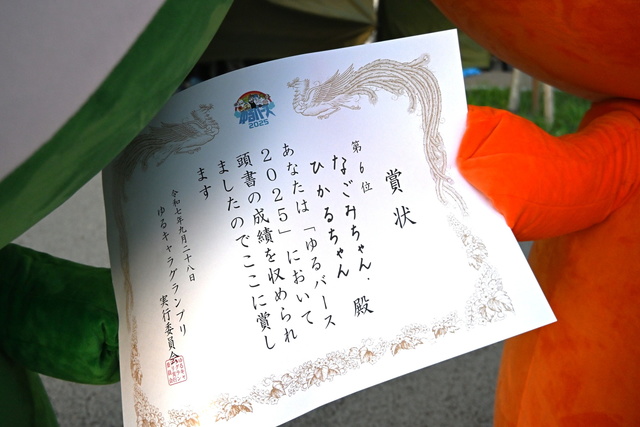 賞状
第6位
なごみちゃん・
ひかるちゃん 殿
あなたは「ゆるバース
2025」において
頭書の成績を収められ
ましたのでここに賞し
ます
令和七年九月二十八日
ゆるキャラグランプリ 実行委員会
ゆるバース
2025